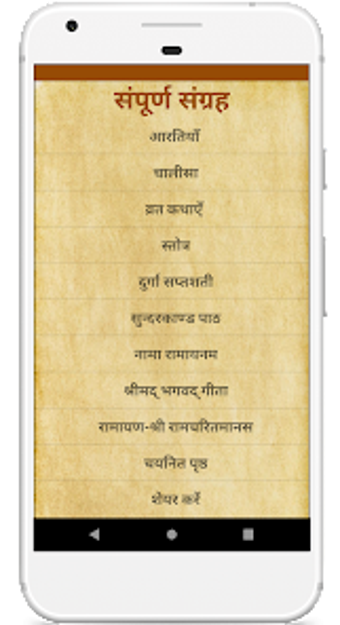 संपूर्ण संग्रह
आरतियाँ
चालीसा
व्रत कथाएँ
स्तोत्र
दुर्गा सप्तशती
सुन्दरकाण्ड पाठ
नामा रामायनम
श्रीमद् भगवद् गीता
रामायण-श्री रामचरितमानस
चयनित पृष्ठ
शेयर करें